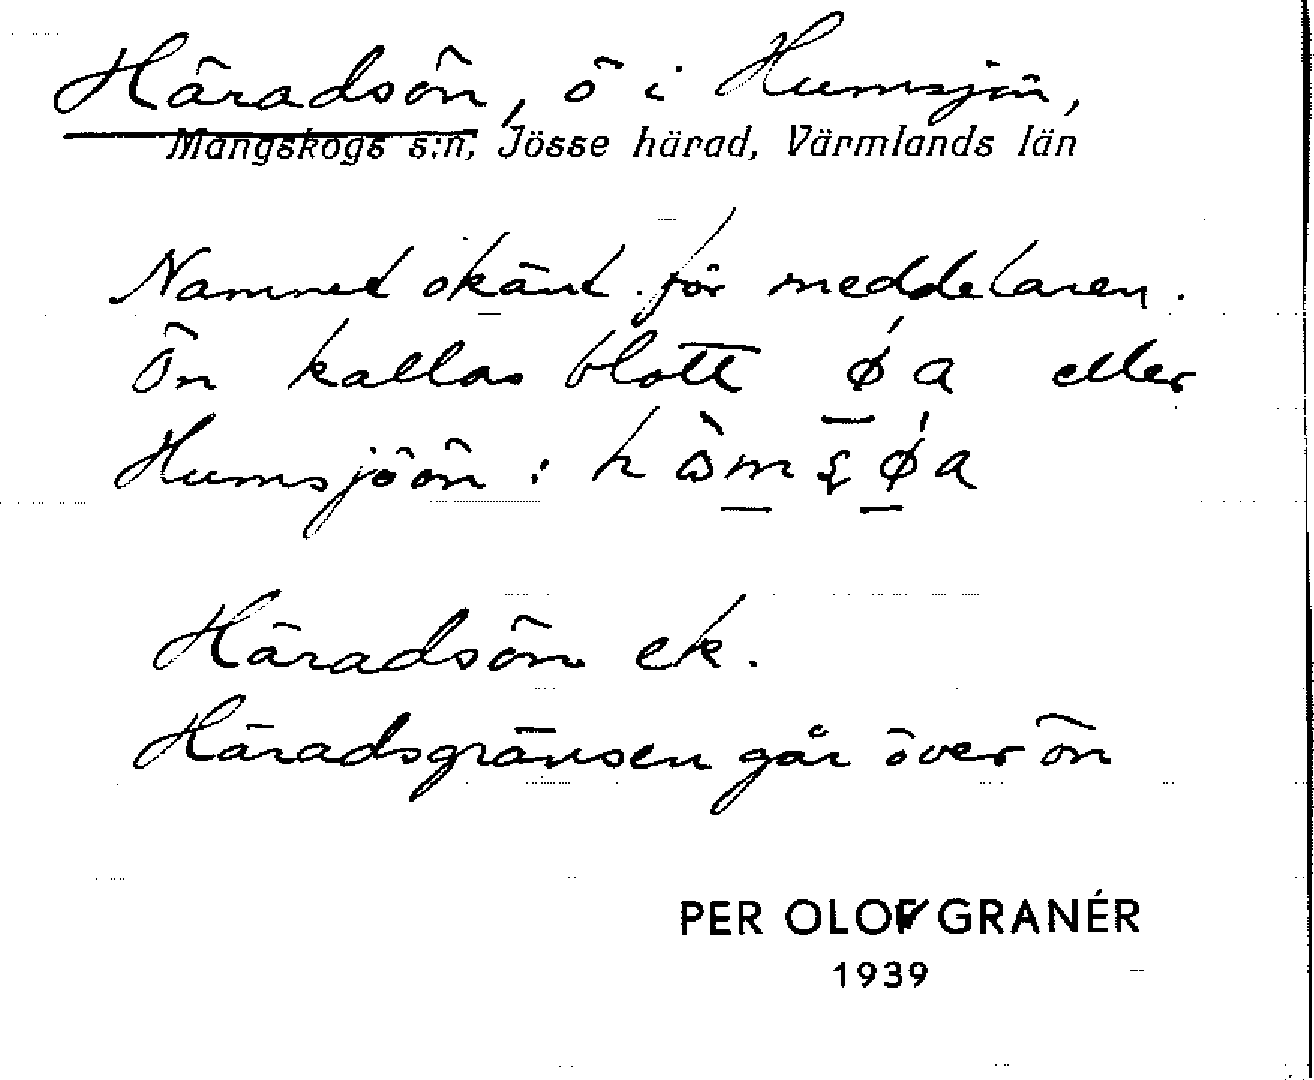 Häradsön, ö i Humsjön,
Mangskogs s:n, Jösse härad, Värmlands län
Namnet okänt för meddelaren.
Ön kallas blott ǿa eller
Humsjöön: 
Häradsön ek.
Häradsgränsen går över ön
PER OLOF GRANÉR
1939